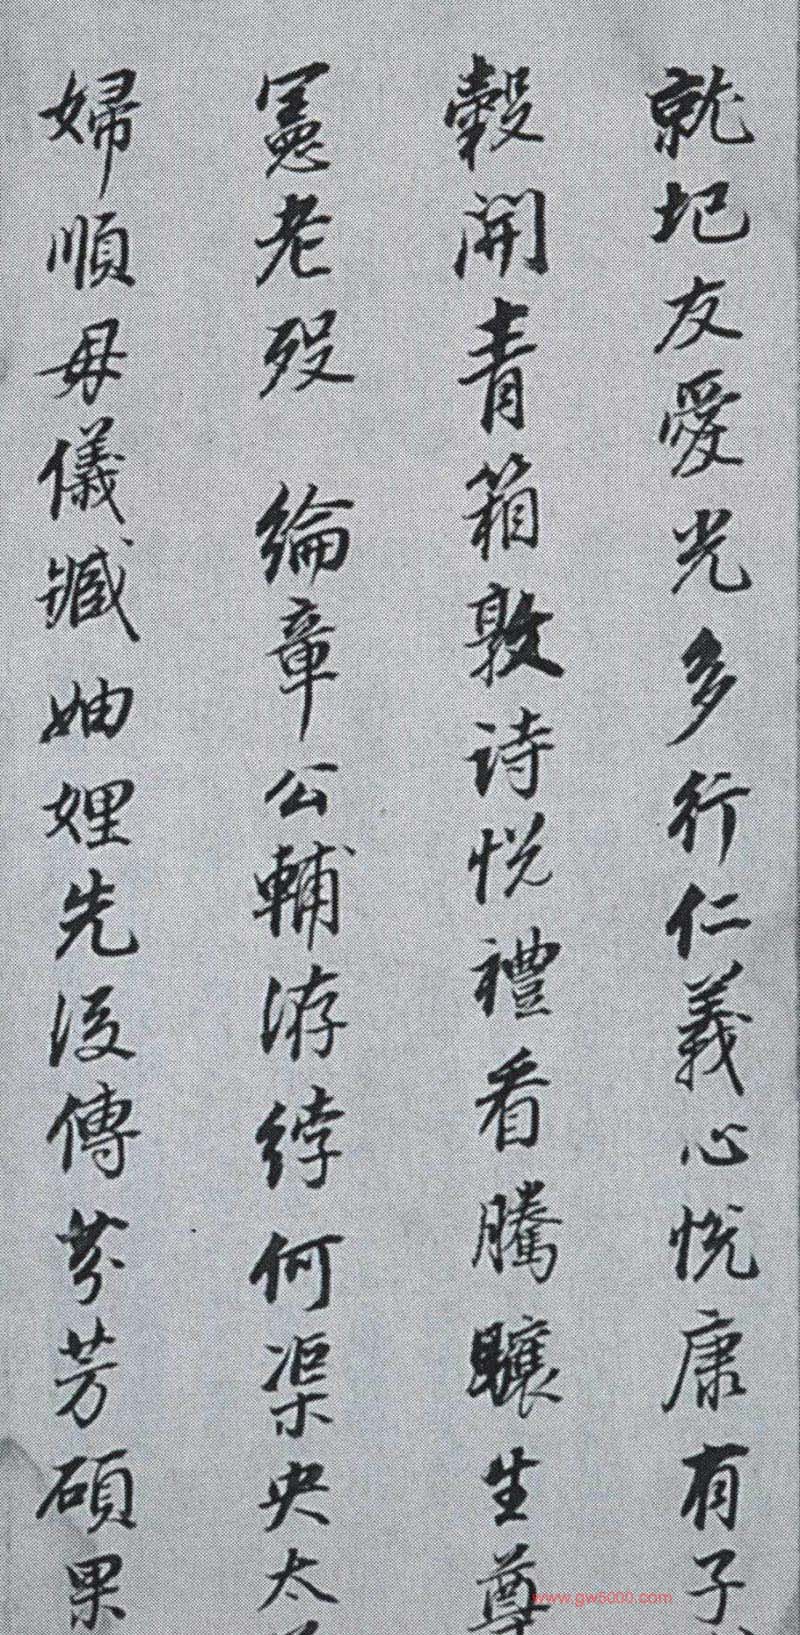 就圯友愛光多行仁義心悅康有子
穀開青箱敦詩悅禮看騰驤生尊
憲老歿 綸章公輔游綍何渠央太
婦順毋儀臧妯娌先後傳芬芳碩果
www.gw5000.com